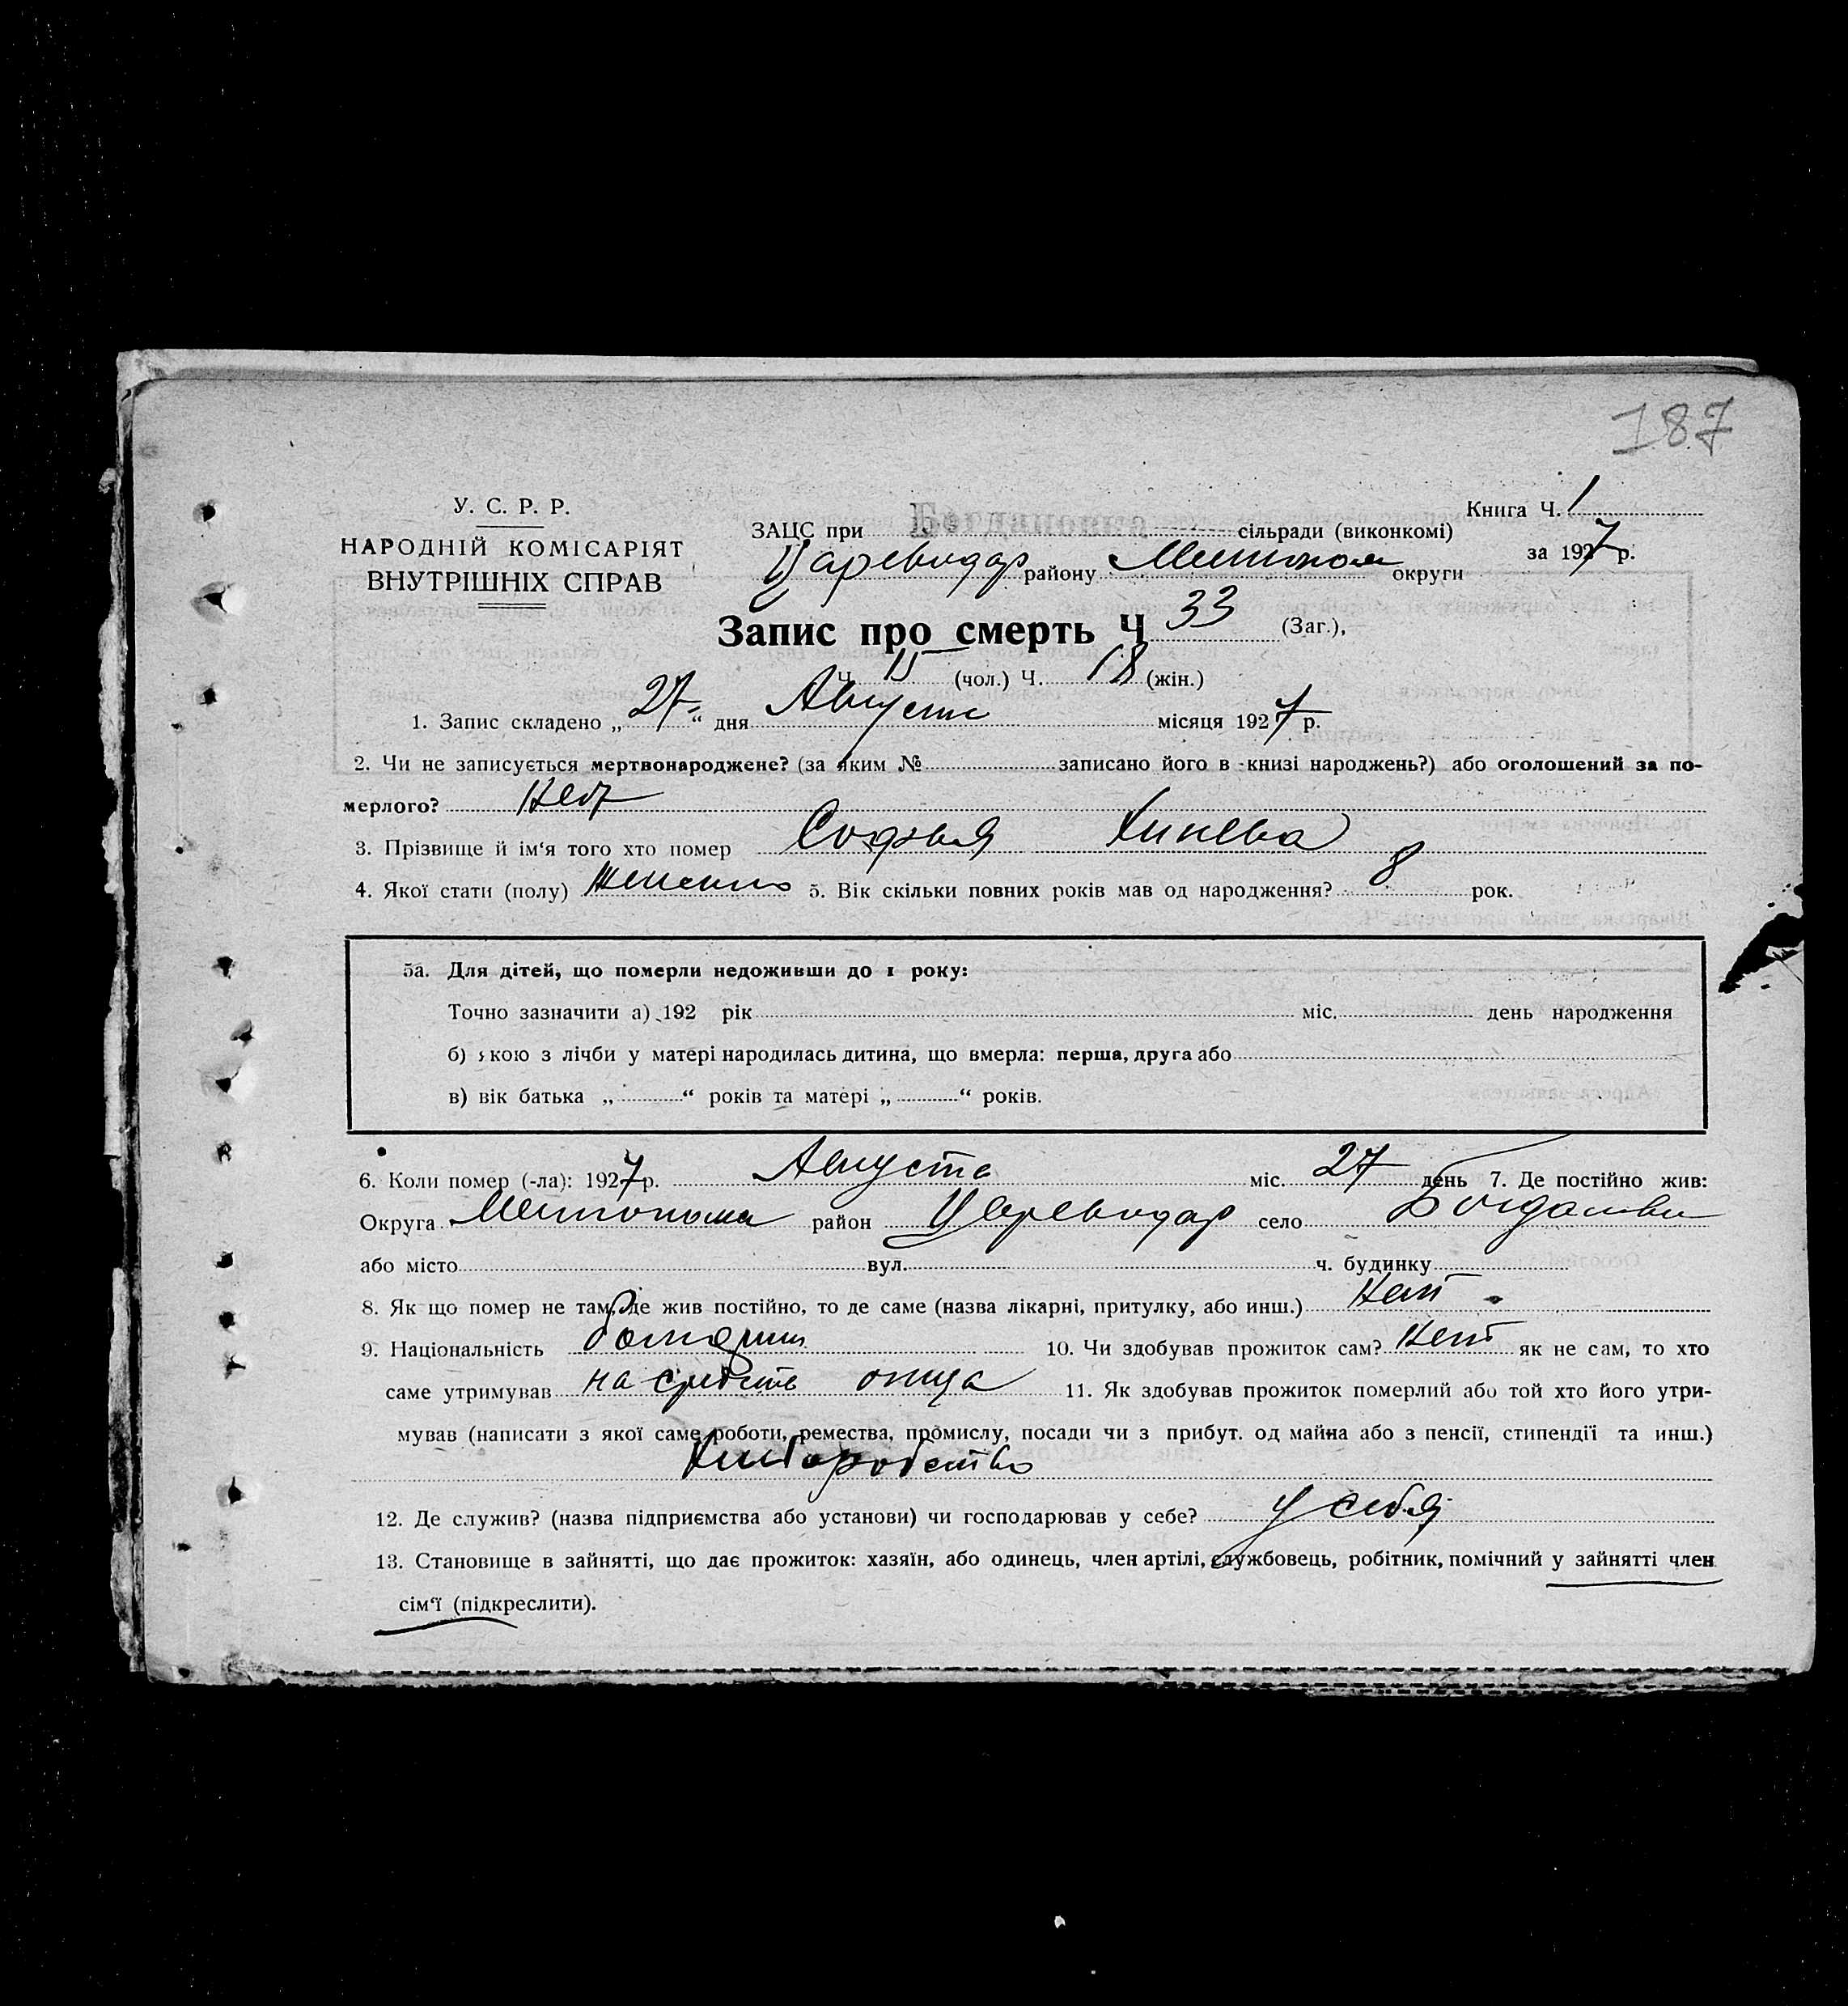 187
У. С. Р. Р.
НАРОДНІЙ КОМІСАРІЯТ
ВНУТРІШНІХ СПРАВ
Книга Ч. 1
за 1927 р.
ЗАЦС при сільради (виконкомі)
Цареводар району Мелитопол округи
Запис про смерть Ч 33 (Заг.),
Ч. 15 (чол.) Ч. 18 (жін.)
1. Запис складено „ 27 “ дня Августа місяця 1927 р.
2. Чи не записується мертвонароджене? (за яким № записано його в книзі народжень?) або оголошений за по-
мерлого? Нет
3. Прізвище й ім‘я того хто помер Софья
4. Якої стати (полу) 5. Вік скільки повних років мав од народження? 8 рок.
5а. Для дітей, що померли недоживши до 1 року:
Точно зазначити а) 192 рік міс. день народження
б) якою з лічби у матері народилась дитина, що вмерла: перша, друга або
в) вік батька „ “ років та матері „ “ років.
6. Коли помер (-ла): 1927 р. Августа міс. 27 день 7. Де постійно жив:
Округа район Цареводар село
або місто вул. ч. будинку
8. Як що помер не там, де жив постійно, то де саме (назва лікарні, притулку, або инш.) Нет
9. Національність 10. Чи здобував прожиток сам? Нет як не сам, то хто
саме утримував на средств отца 11. Як здобував прожиток померлий або той хто його утри-
мував (написати з якої саме роботи, ремества, промислу, посади чи з прибут. од майна або з пенсії, стипендії та инш.)
12. Де служив? (назва підприємства або установи) чи господарював у себе? у себя
13. Становище в зайнятті, що дає прожиток: хазяїн, або одинець, член артілі, службовець, робітник, помічний у зайнятті член
сім‘ї (підкреслити).